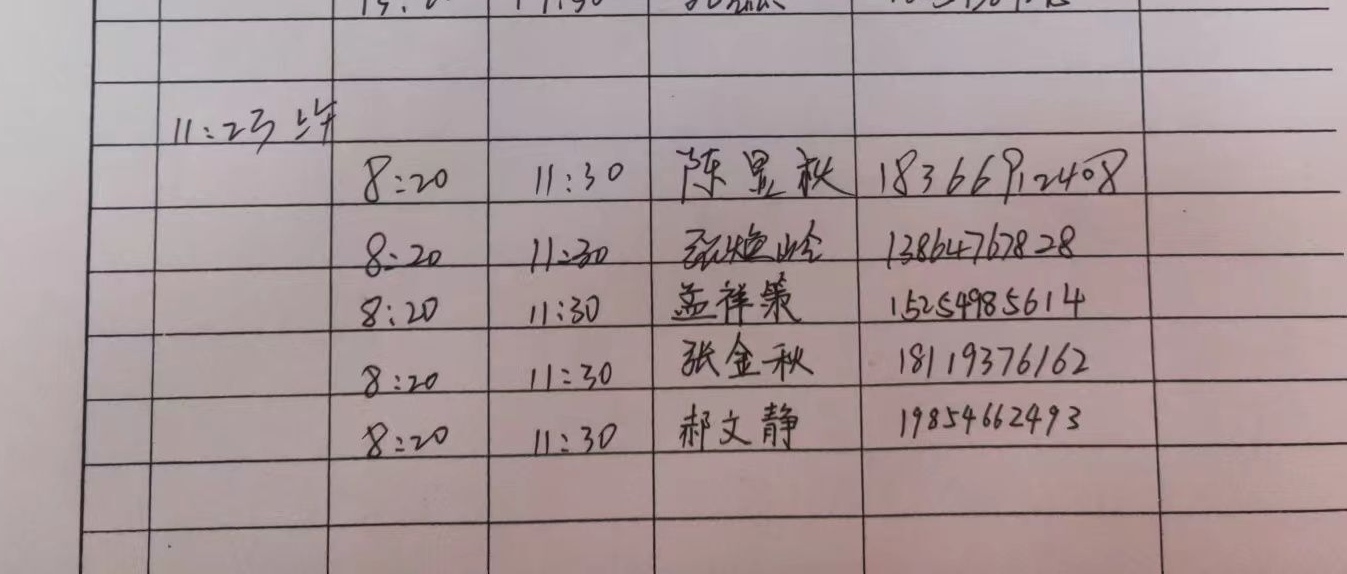 11:23 上午
8:20 11:30 陈显秋 18366912408
8:20 11:30 张焕岭 13864767828
8:20 11:30 孟祥策 15254985614
8:20 11:30 张金秋 18119376162
8:20 11:30 郝文静 19854662493